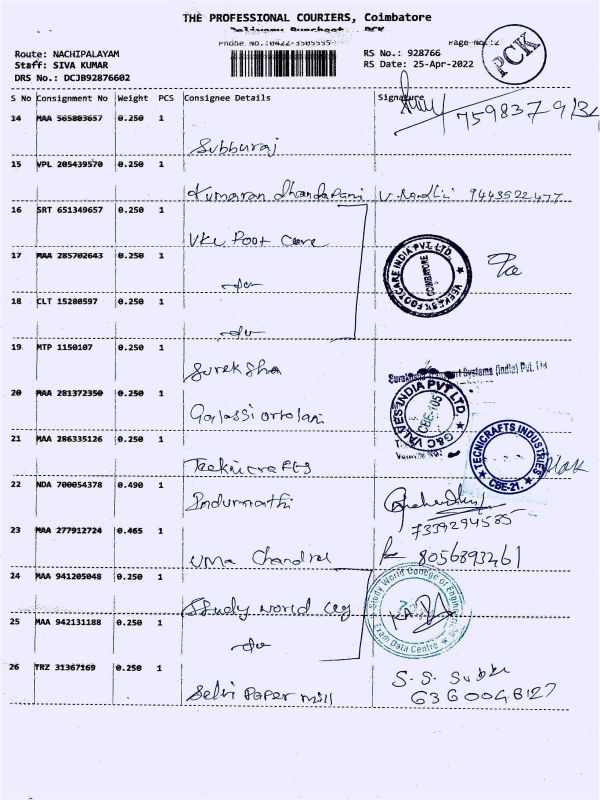 THE PROFESSIONAL COURIERS, Coimbatore
Delivery Runsheet PCK
Phone No.:0422-3505555 Page No.:2
PCK
Route: NACHIPALAYAM RS No.: 928766
Staff: SIVA KUMAR RS Date: 25-Apr-2022
DRS No.: DCJB92876602
S No Consignment No Weight PCS Consignee Details Signature
14 MAA 565803657 0.250 1
Subburaj
15 VPL 205439570 0.250 1
Kumaran Dhandapani 9443522477
16 SRT 651349657 0.250 1
VKC Foot Care
17 MAA 285702643 0.250 1
-do-
VEEKESY FOOTCARE INDIA PVT. LTD. COIMBATORE
18 CLT 15280597 0.250 1
-do-
19 MTP 1150107 0.250 1
Sureksha
Transport Systems (India) Pvt. Ltd
20 MAA 281372350 0.250 1
Galassi ortolani
G&C VALVES INDIA PVT LTD CBE-105
21 MAA 286335126 0.250 1
Tecknicrafts
TECNICRAFTS INDUSTRIES CBE-21.
22 NDA 700054378 0.490 1
Indumathi
7339294585
23 MAA 277912724 0.465 1
Uma Chandra 8056893461
24 MAA 941205048 0.250 1
Study world clg
Study World College of Engineering Exam Data Centre
25 MAA 942131188 0.250 1
-do-
26 TRZ 31367169 0.250 1
Selvi Paper mill
S. S. Subbu
6360048127